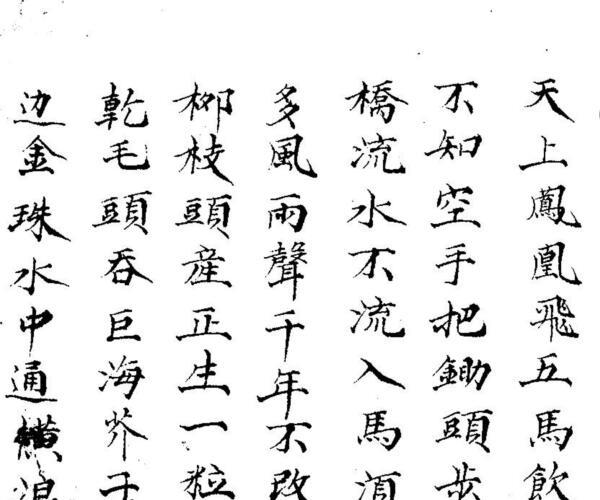 天上鳳凰飛五馬飲
不知空手把鋤頭步
橋流水不流入馬
多風雨聲千年不改
柳枝頭産正生一粒
乹毛頭吞巨海芥子
边金珠水中通